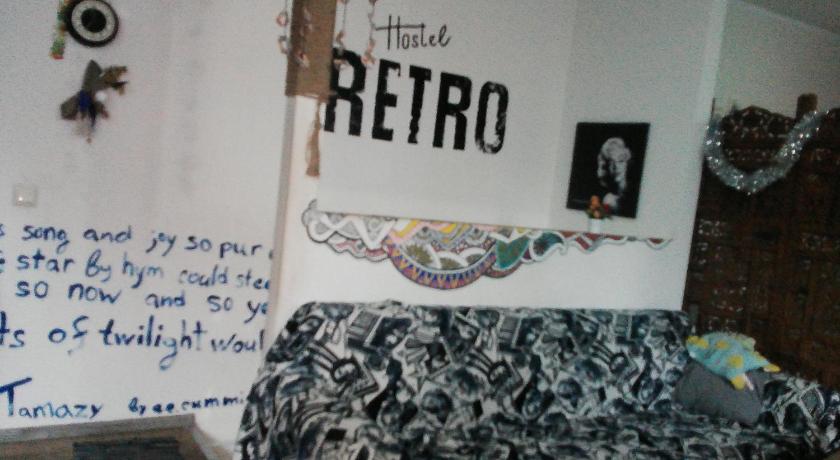 Hostel
RETRO
song and joy so pur
star by hym could stee
so now and so ye
of twilight woul
Tamazy by e.e.cummi